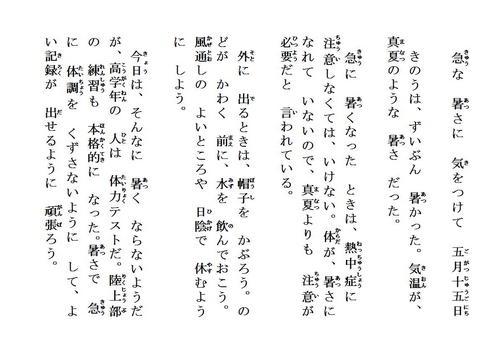 急な 暑さに 気をつけて 五月十五日
きのうは、ずいぶん 暑かった。気温が、
真夏のような 暑さ だった。
急に 暑くなった ときは、熱中症に
注意しなくては、いけない。体が、暑さに
なれて いないので、真夏よりも 注意が
必要だと 言われている。
外に 出るときは、帽子を かぶろう。の
どが かわく 前に、水を 飲んでおこう。
風通しの よいところや 日陰で 休むよう
に しよう。
今日は、そんなに 暑く ならないようだ
が、高学年の 人は 体力テストだ。陸上部
の 練習も 本格的に なった。暑さで 急
に 体調を くずさないように して、よ
い記録が 出せるように 頑張ろう。